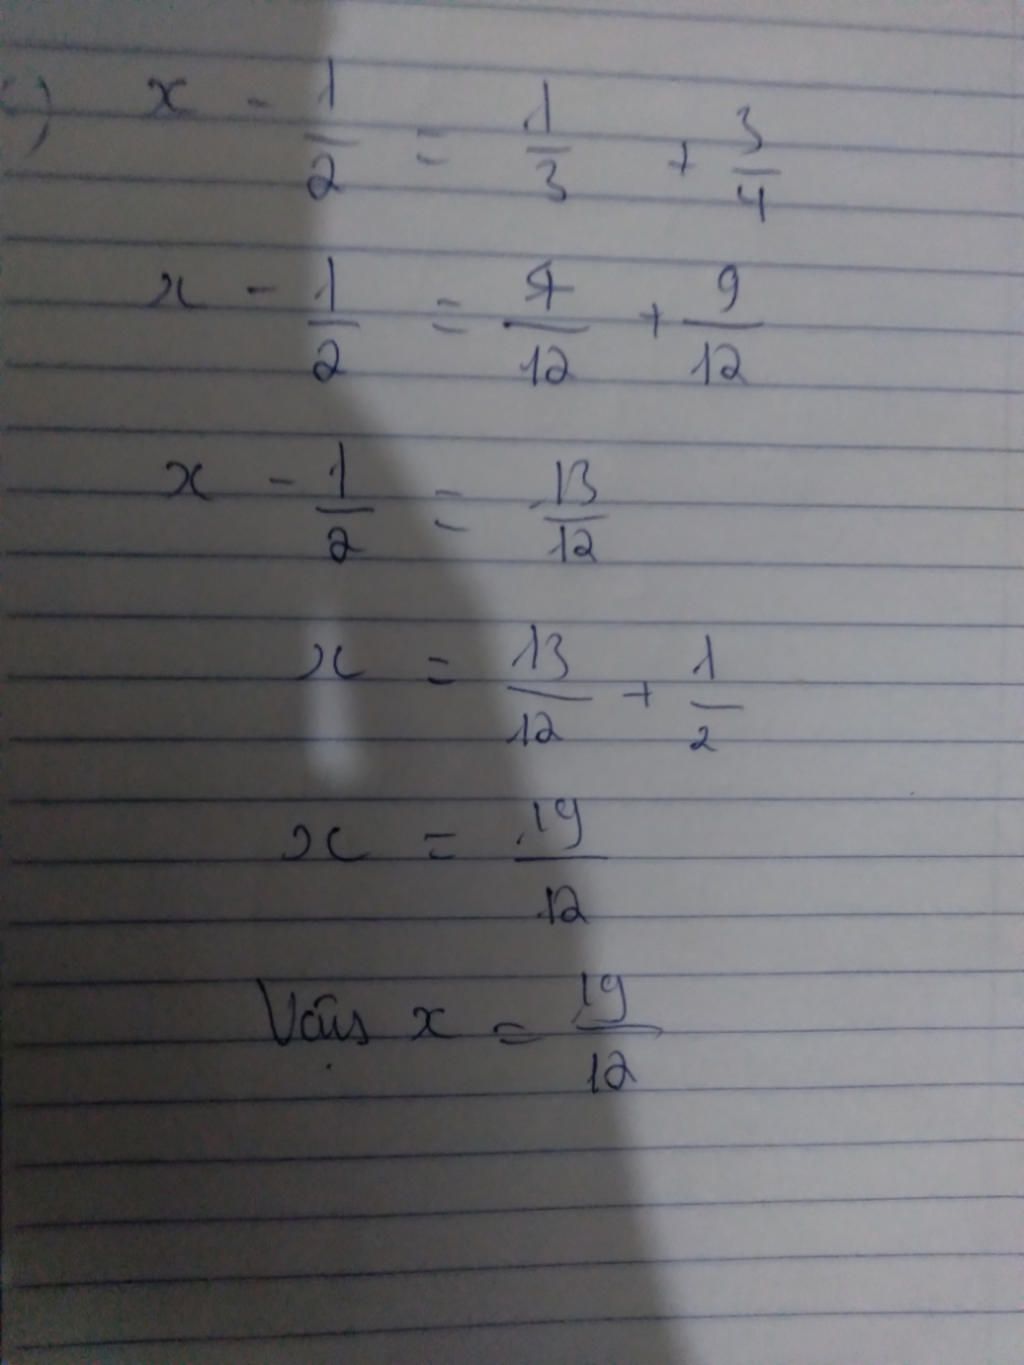 c) x - 1/2 = 1/3 + 3/4
x - 1/2 = 4/12 + 9/12
x - 1/2 = 13/12
x = 13/12 + 1/2
x = 19/12
Vậy x = 19/12